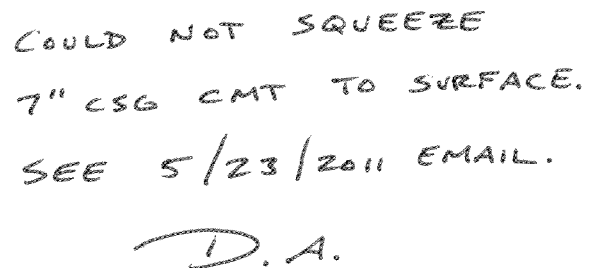 COULD NOT SQUEEZE
7" CSG CMT TO SURFACE.
SEE 5/23/2011 EMAIL.
D.A.